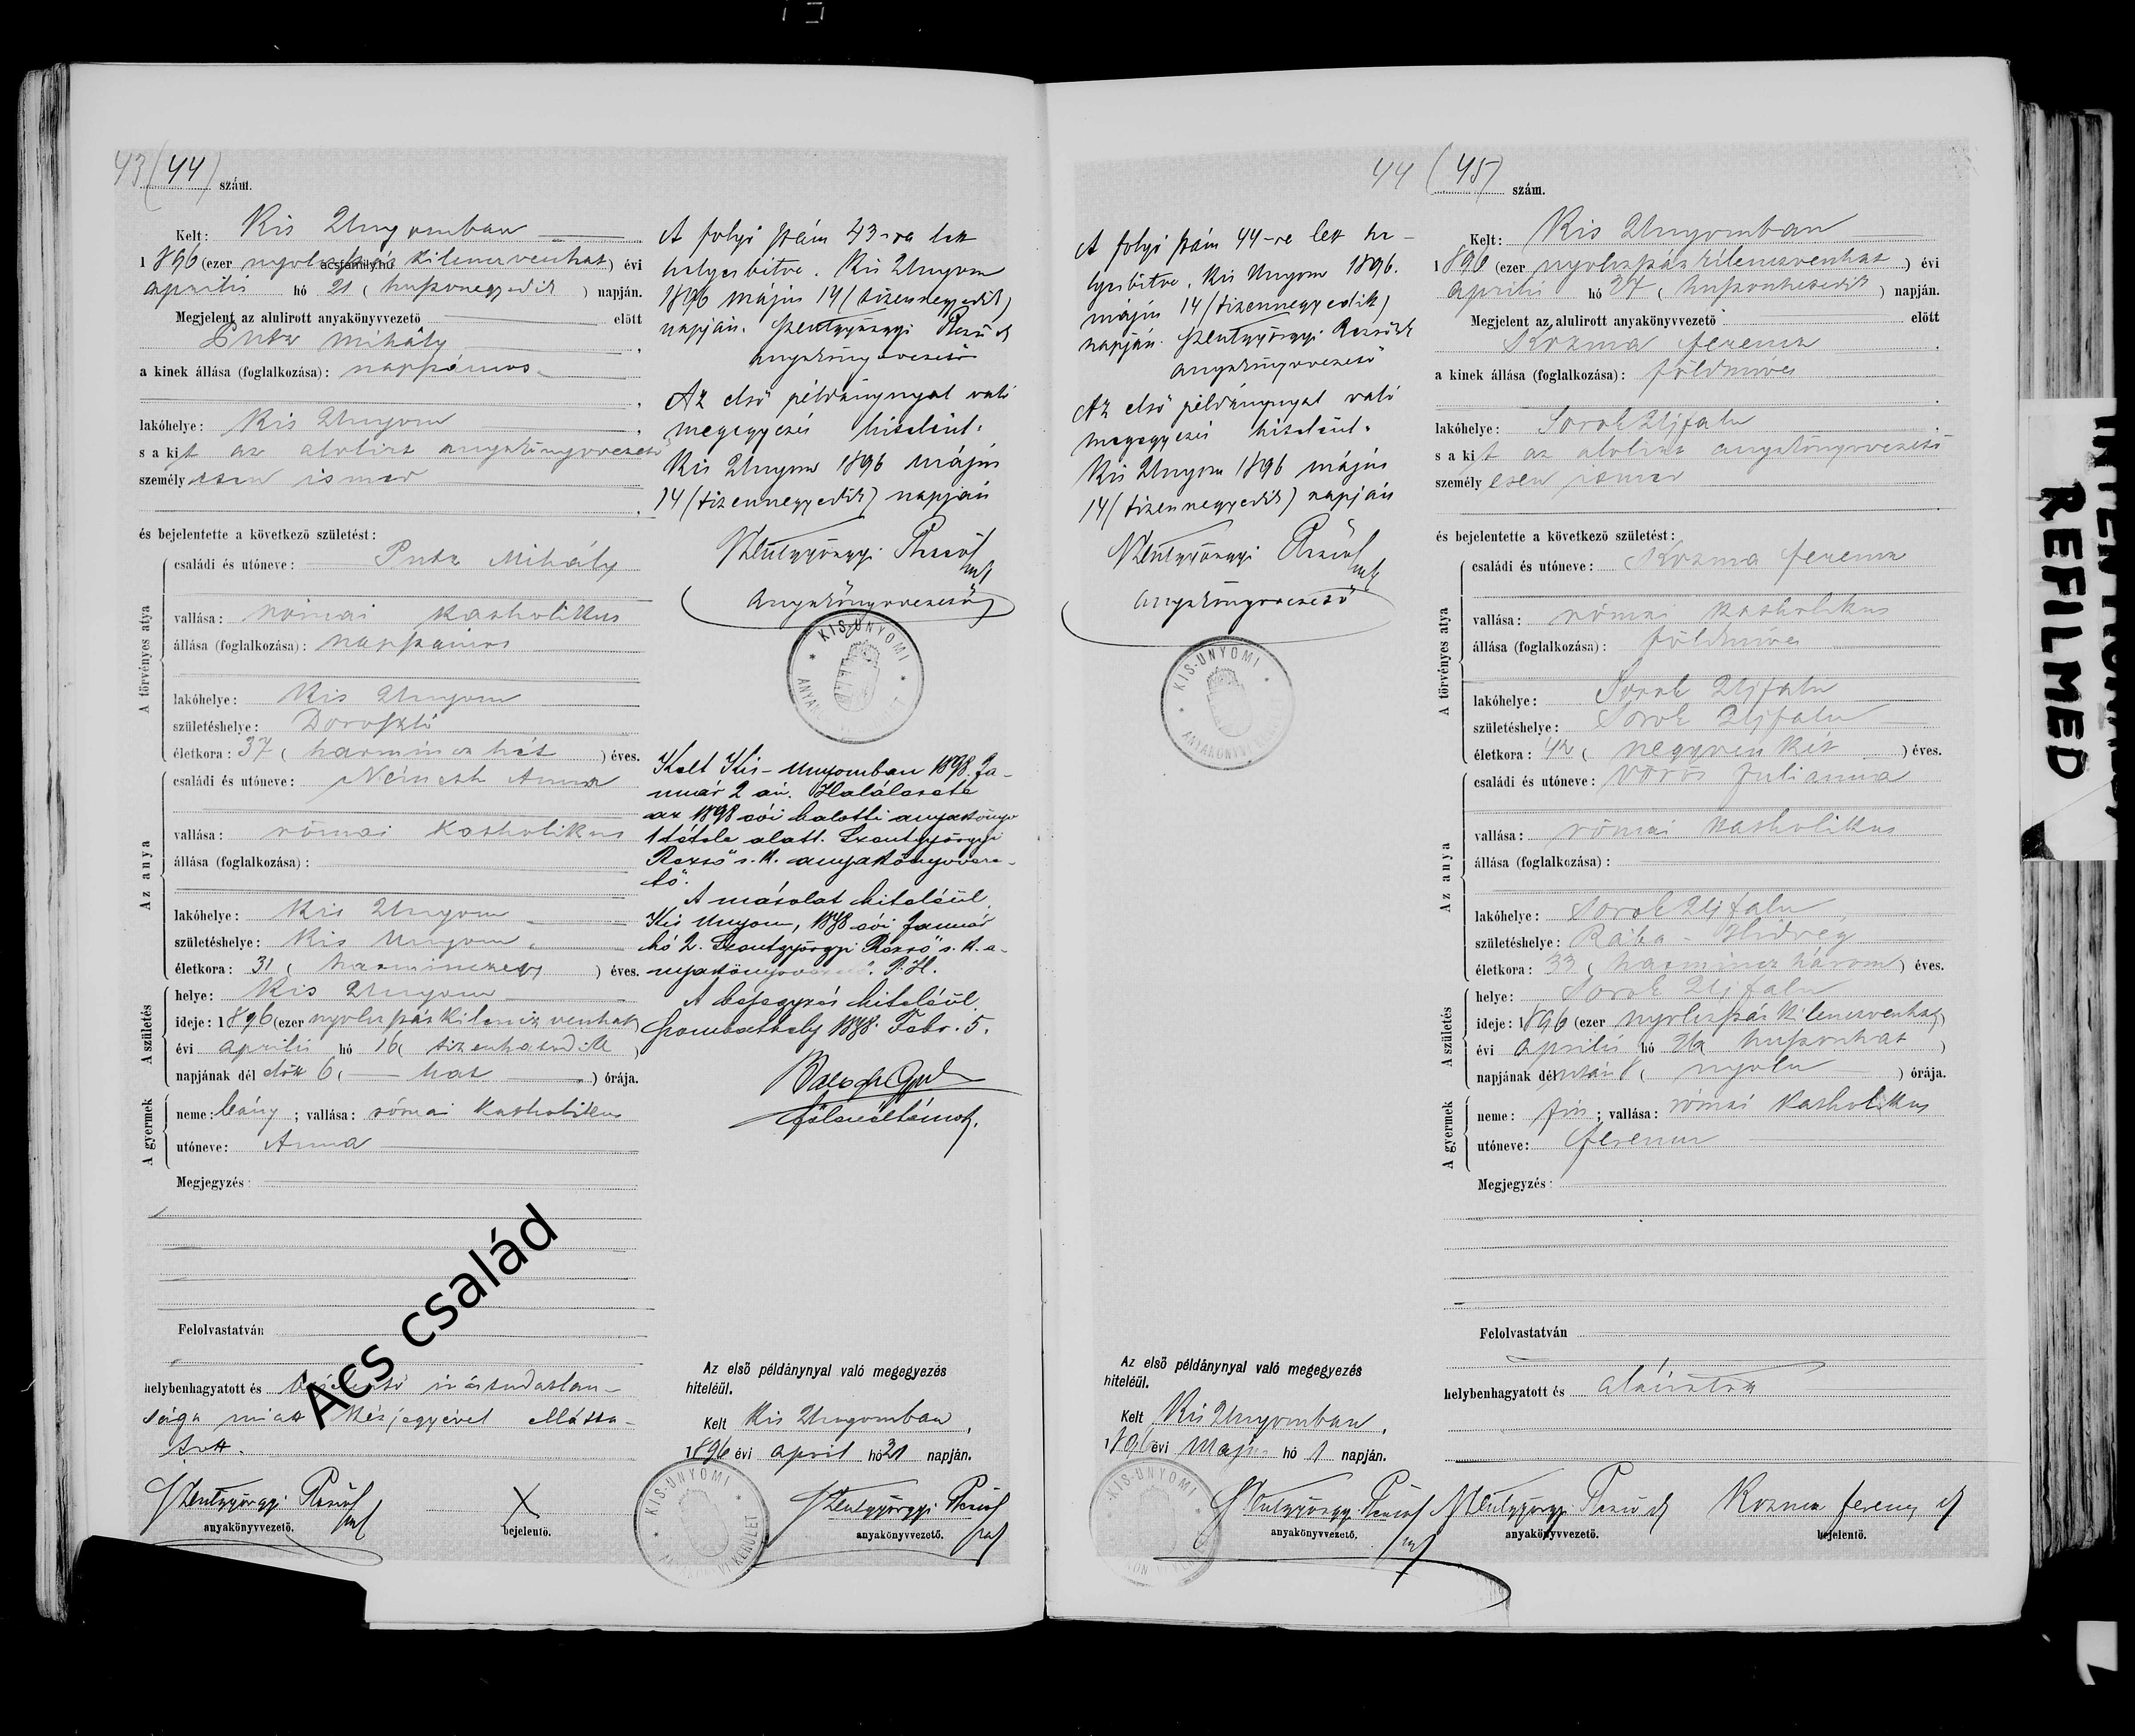 43 (44) szám.
Kelt: Kis Unyomban
1896 (ezer nyolczszáz kilenczvenhat) évi
április hó 21 (huszonegyedik) napján.
Megjelent az alulirott anyakönyvvezető előtt
Putz Mihály
a kinek állása (foglalkozása): napszámos
lakóhelye: Kis Unyom
s a kit az alulirt anyakönyvvezető
személyesen ismer
és bejelentette a következő születést:
A törvényes atya
családi és utóneve: Putz Mihály
vallása: római katholikus
állása (foglalkozása): napszámos
lakóhelye: Kis Unyom
születéshelye: Doroszló
életkora: 37 (harmincz hét) éves.
Az anya
családi és utóneve: Németh Anna
vallása: római katholikus
állása (foglalkozása):
lakóhelye: Kis Unyom
születéshelye: Kis Unyom
életkora: 31 (harminczegy) éves.
A születés
helye: Kis Unyom
ideje: 1896 (ezer nyolczszáz kilencz venhat)
évi április hó 16 (tizenhatodik)
napjának dél előtt 6 (hat) órája.
A gyermek
neme: leány; vallása: római katholikus
utóneve: Anna
Megjegyzés:
Felolvastatván
helybenhagyatott és bejelentő irástudatlan-
sága miatt kézjegyével elláta-
tott.
Szentgyörgyi Rezső mk
anyakönyvvezető.
X
bejelentő.
A folyó szám 43-ra lett
helyesbitve. Kis Unyom
1896 május 14 (tizennegyedik)
napján. Szentgyörgyi Rezső sk
anyakönyvvezető
Az első példánynyal való
megegyezés hiteléül.
Kis Unyom 1896 május
14 (tizennegyedik) napján
Szentgyörgyi Rezső mk
anyakönyvvezető
KIS-UNYOMI
Kelt Kis-Unyomban 1898. Ja-
nuár 2 án. Halálesete
az 1898 évi halotti anyakönyv
1 tétele alatt. Szentgyörgyi
Rezső s. k. anyakönyvveze-
tő.
A másolat hiteléül
Kis Unyom, 1898 évi Január
hó 2. Szentgyörgyi Rezső s. k. a-
nyakönyvvezető. P. H.
A bejegyzés hiteléül
Szombathely 1898. Febr. 5.
Az első példánynyal való megegyezés
hiteléül.
Kelt Kis Unyomban,
1896 évi april hó 21 napján.
KIS-UNYOMI ANYAKÖNYVI KERÜLET
Szentgyörgyi Rezső mk
anyakönyvvezető.
acsfamily.hu
Ács család
44 (45) szám.
A folyó szám 44-re lett he-
lyesbitve. Kis Unyom 1896.
május 14 (tizennegyedik)
napján. Szentgyörgyi Rezső sk
anyakönyvvezető
Az első példánynyal való
megegyezés hiteléül.
Kis Unyom 1896 május
14 (tizennegyedik) napján
Szentgyörgyi Rezső mk
anyakönyvvezető
KIS-UNYOMI
Az első példánynyal való megegyezés
hiteléül.
Kelt Kis Unyomban,
1896 évi május hó 1 napján.
KIS-UNYOMI
Szentgyörgyi Rezső mk
anyakönyvvezető.
Kelt: Kis Unyomban
1896 (ezer nyolczszáz kilenczvenhat) évi
április hó 27 (huszonhetedik) napján.
Megjelent az alulirott anyakönyvvezető előtt
Kozma Ferencz
a kinek állása (foglalkozása): földmíves
lakóhelye: Sorok Ujfalu
s a kit az alulirt anyakönyvvezető
személyesen ismer
és bejelentette a következő születést:
A törvényes atya
családi és utóneve: Kozma Ferencz
vallása: római katholikus
állása (foglalkozása): földmíves
lakóhelye: Sorok Ujfalu
születéshelye: Sorok Ujfalu
életkora: 42 (negyven két) éves.
Az anya
családi és utóneve: Vörös Julianna
vallása: római katholikus
állása (foglalkozása):
lakóhelye: Sorok Ujfalu
születéshelye: Rába Hidvég
életkora: 33 (harmincz három) éves.
A születés
helye: Sorok Ujfalu
ideje: 1896 (ezer nyolczszáz kilenczvenhat)
évi április hó 26 huszonhat)
napjának délután 8 (nyolcz) órája.
A gyermek
neme: fiu; vallása: római katholikus
utóneve: Ferencz
Megjegyzés:
Felolvastatván
helybenhagyatott és aláiratott
Szentgyörgyi Rezső sk
anyakönyvvezető.
Kozma Ferencz sk
bejelentő.
REFILMED